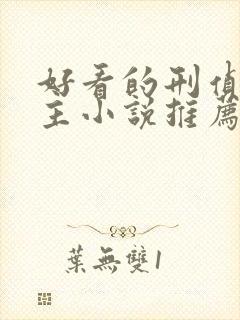 好看的刑偵
主小說推薦
葉無雙1